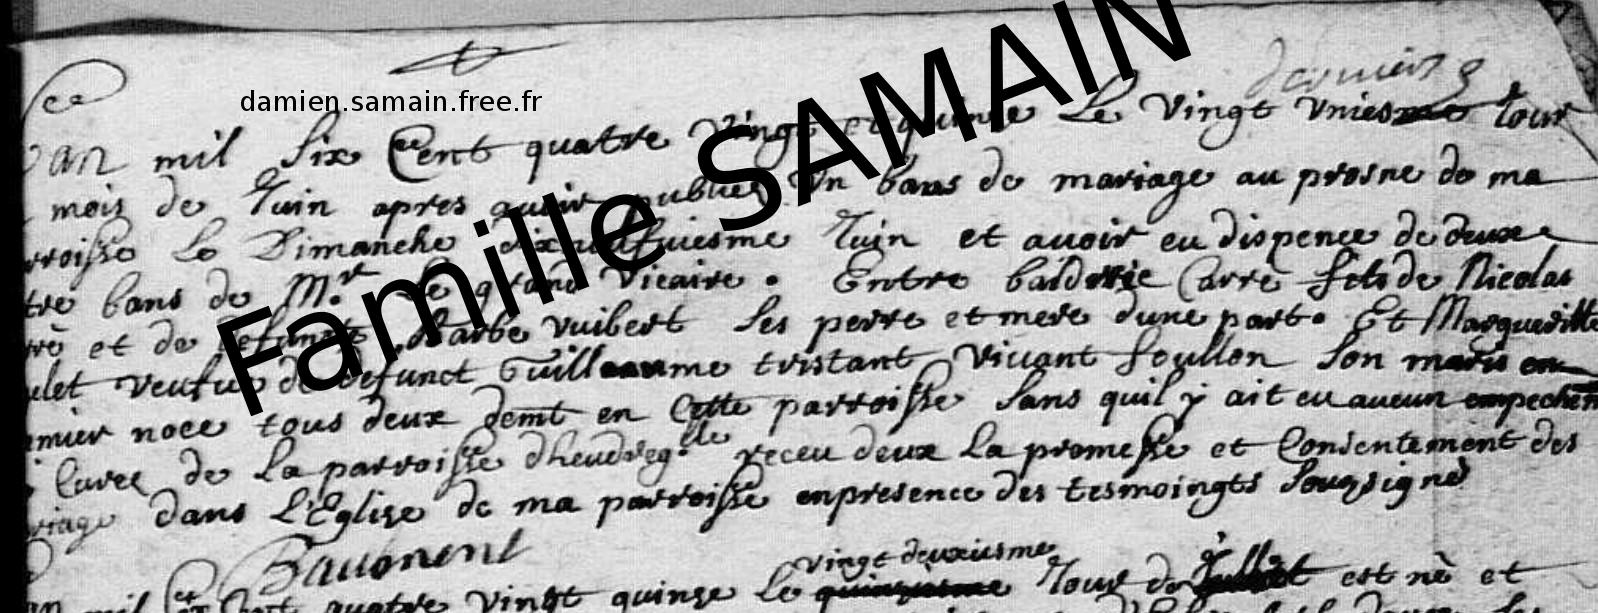 damien.samain.free.fr
Famille SAMAIN
L'an mil six cent quatre vingt et quinze le vingt uniesme Jour
mois de Juin apres avoir publiez un bans de mariage au prosne de ma
rroisse le Dimanche dixneufviesme Juin et avoir eu dispence de deux
tre bans de Mr le grand vicaire . Entre balderic Carré fils de Nicolas
rré et de defuncte Barbe vuibert ses perre et mere dune part. Et Margueritte
ulet veufve de defunct Guillaume tristant vivant foullon son maris en
emier noce tous deux demt en cette parroisse sans quil y ait eu aucun empechem
Curee de la parroisse dheudregelle receu deux la promesse et consentement des
riage dans L'Eglise de ma parroisse enpresence des tesmoingts sousigné
Baubnent
vingt deuxiesme
mil six Cent quatre vingt quinze le Jour de Juillet est né et